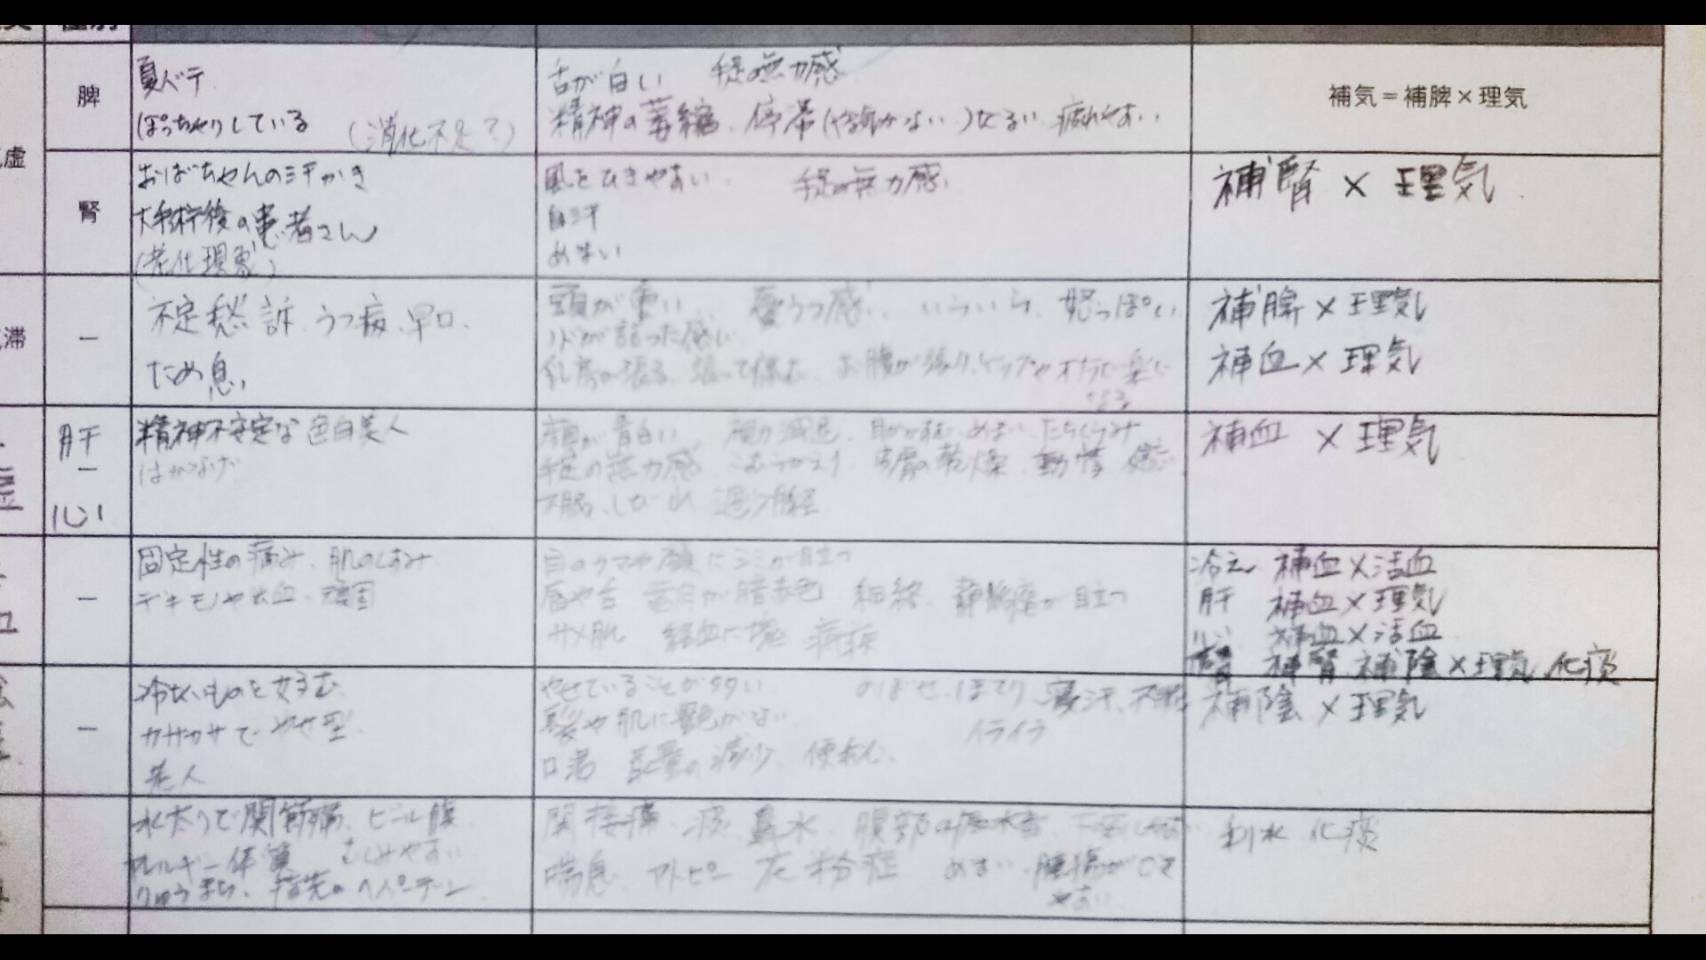 脾
夏バテ
ぽっちゃりしている (消化不足?)
舌が白い 手足の無力感
精神の萎縮、停滞(やる気がない)だるい 疲れやすい
補気=補脾×理気
虚
腎
おばちゃんの汗かき
大手術後の患者さん
(老化現象)
風をひきやすい 手足の無力感
自汗
めまい
補腎×理気
滞
―
不定愁訴、うつ病、早口、
ため息、
頭が重い、憂うつ感、いらいら、怒っぽい
ノドが詰った感じ
乳房が張る お腹が張り、ゲップやオナラで楽に
なる
補脾×理気
補血×理気
肝
―
心
精神不安定な色白美人
はかなげ
顔が青白い 目がかすむ めまい たちくらみ
手足の無力感、こむらがえり 皮膚の乾燥 動悸
不眠、しびれ
補血×理気
―
固定性の痛み、肌のしみ
デキモノや出血
目のクマや顔にシミが目立つ
唇や舌 歯肉が暗赤色 細絡、静脈瘤が目立つ
サメ肌 経血に塊
冷え 補血×活血
肝 補血×理気
心 補血×活血
腎 補腎、補陰×理気、化痰
―
冷たいものを好む
カサカサで やせ型
老人
やせていることが多い のぼせ、ほてり、寝汗、不眠
髪や肌に艶がない イライラ
口渇 尿量の減少、便秘
補陰×理気
水太りで関節痛、ビール腹
アレルギー体質 むくみやすい
りゅうまち、指先のヘバーデン
関接痛、痰、鼻水、
喘息 アトピー 花粉症 めまい 腫瘍ができ
やすい
利水 化痰